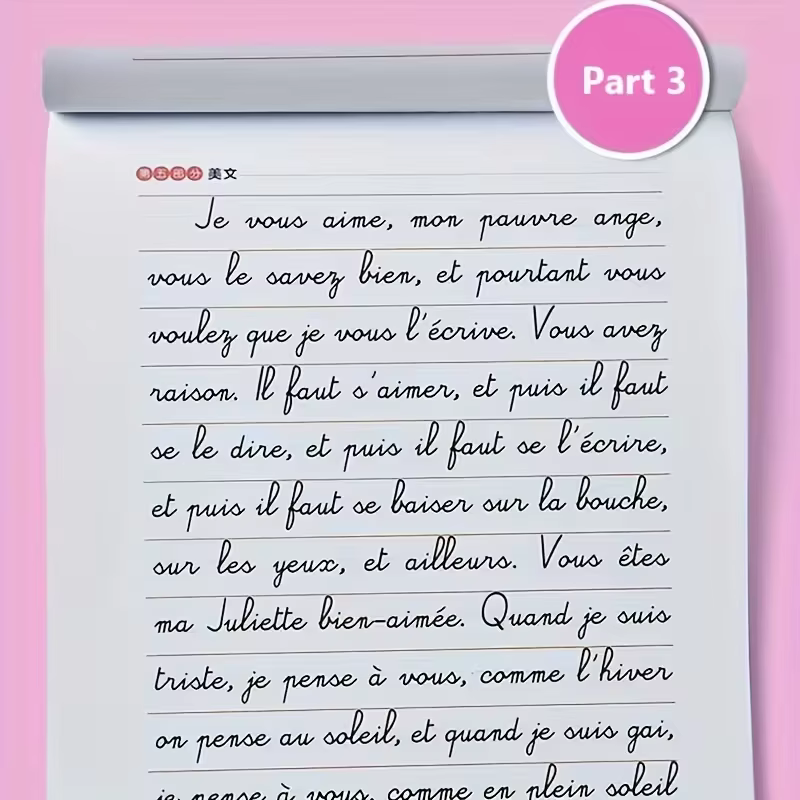 Part 3
第五部分 美文
Je vous aime, mon pauvre ange,
vous le savez bien, et pourtant vous
voulez que je vous l'écrive. Vous avez
raison. Il faut s'aimer, et puis il faut
se le dire, et puis il faut se l'écrire,
et puis il faut se baiser sur la bouche,
sur les yeux, et ailleurs. Vous êtes
ma Juliette bien-aimée. Quand je suis
triste, je pense à vous, comme l'hiver
on pense au soleil, et quand je suis gai,
je pense à vous, comme en plein soleil